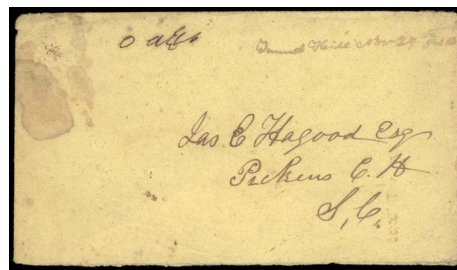 Nov 29
Jas E Hagood Esq
Pickens C. H
S, C.